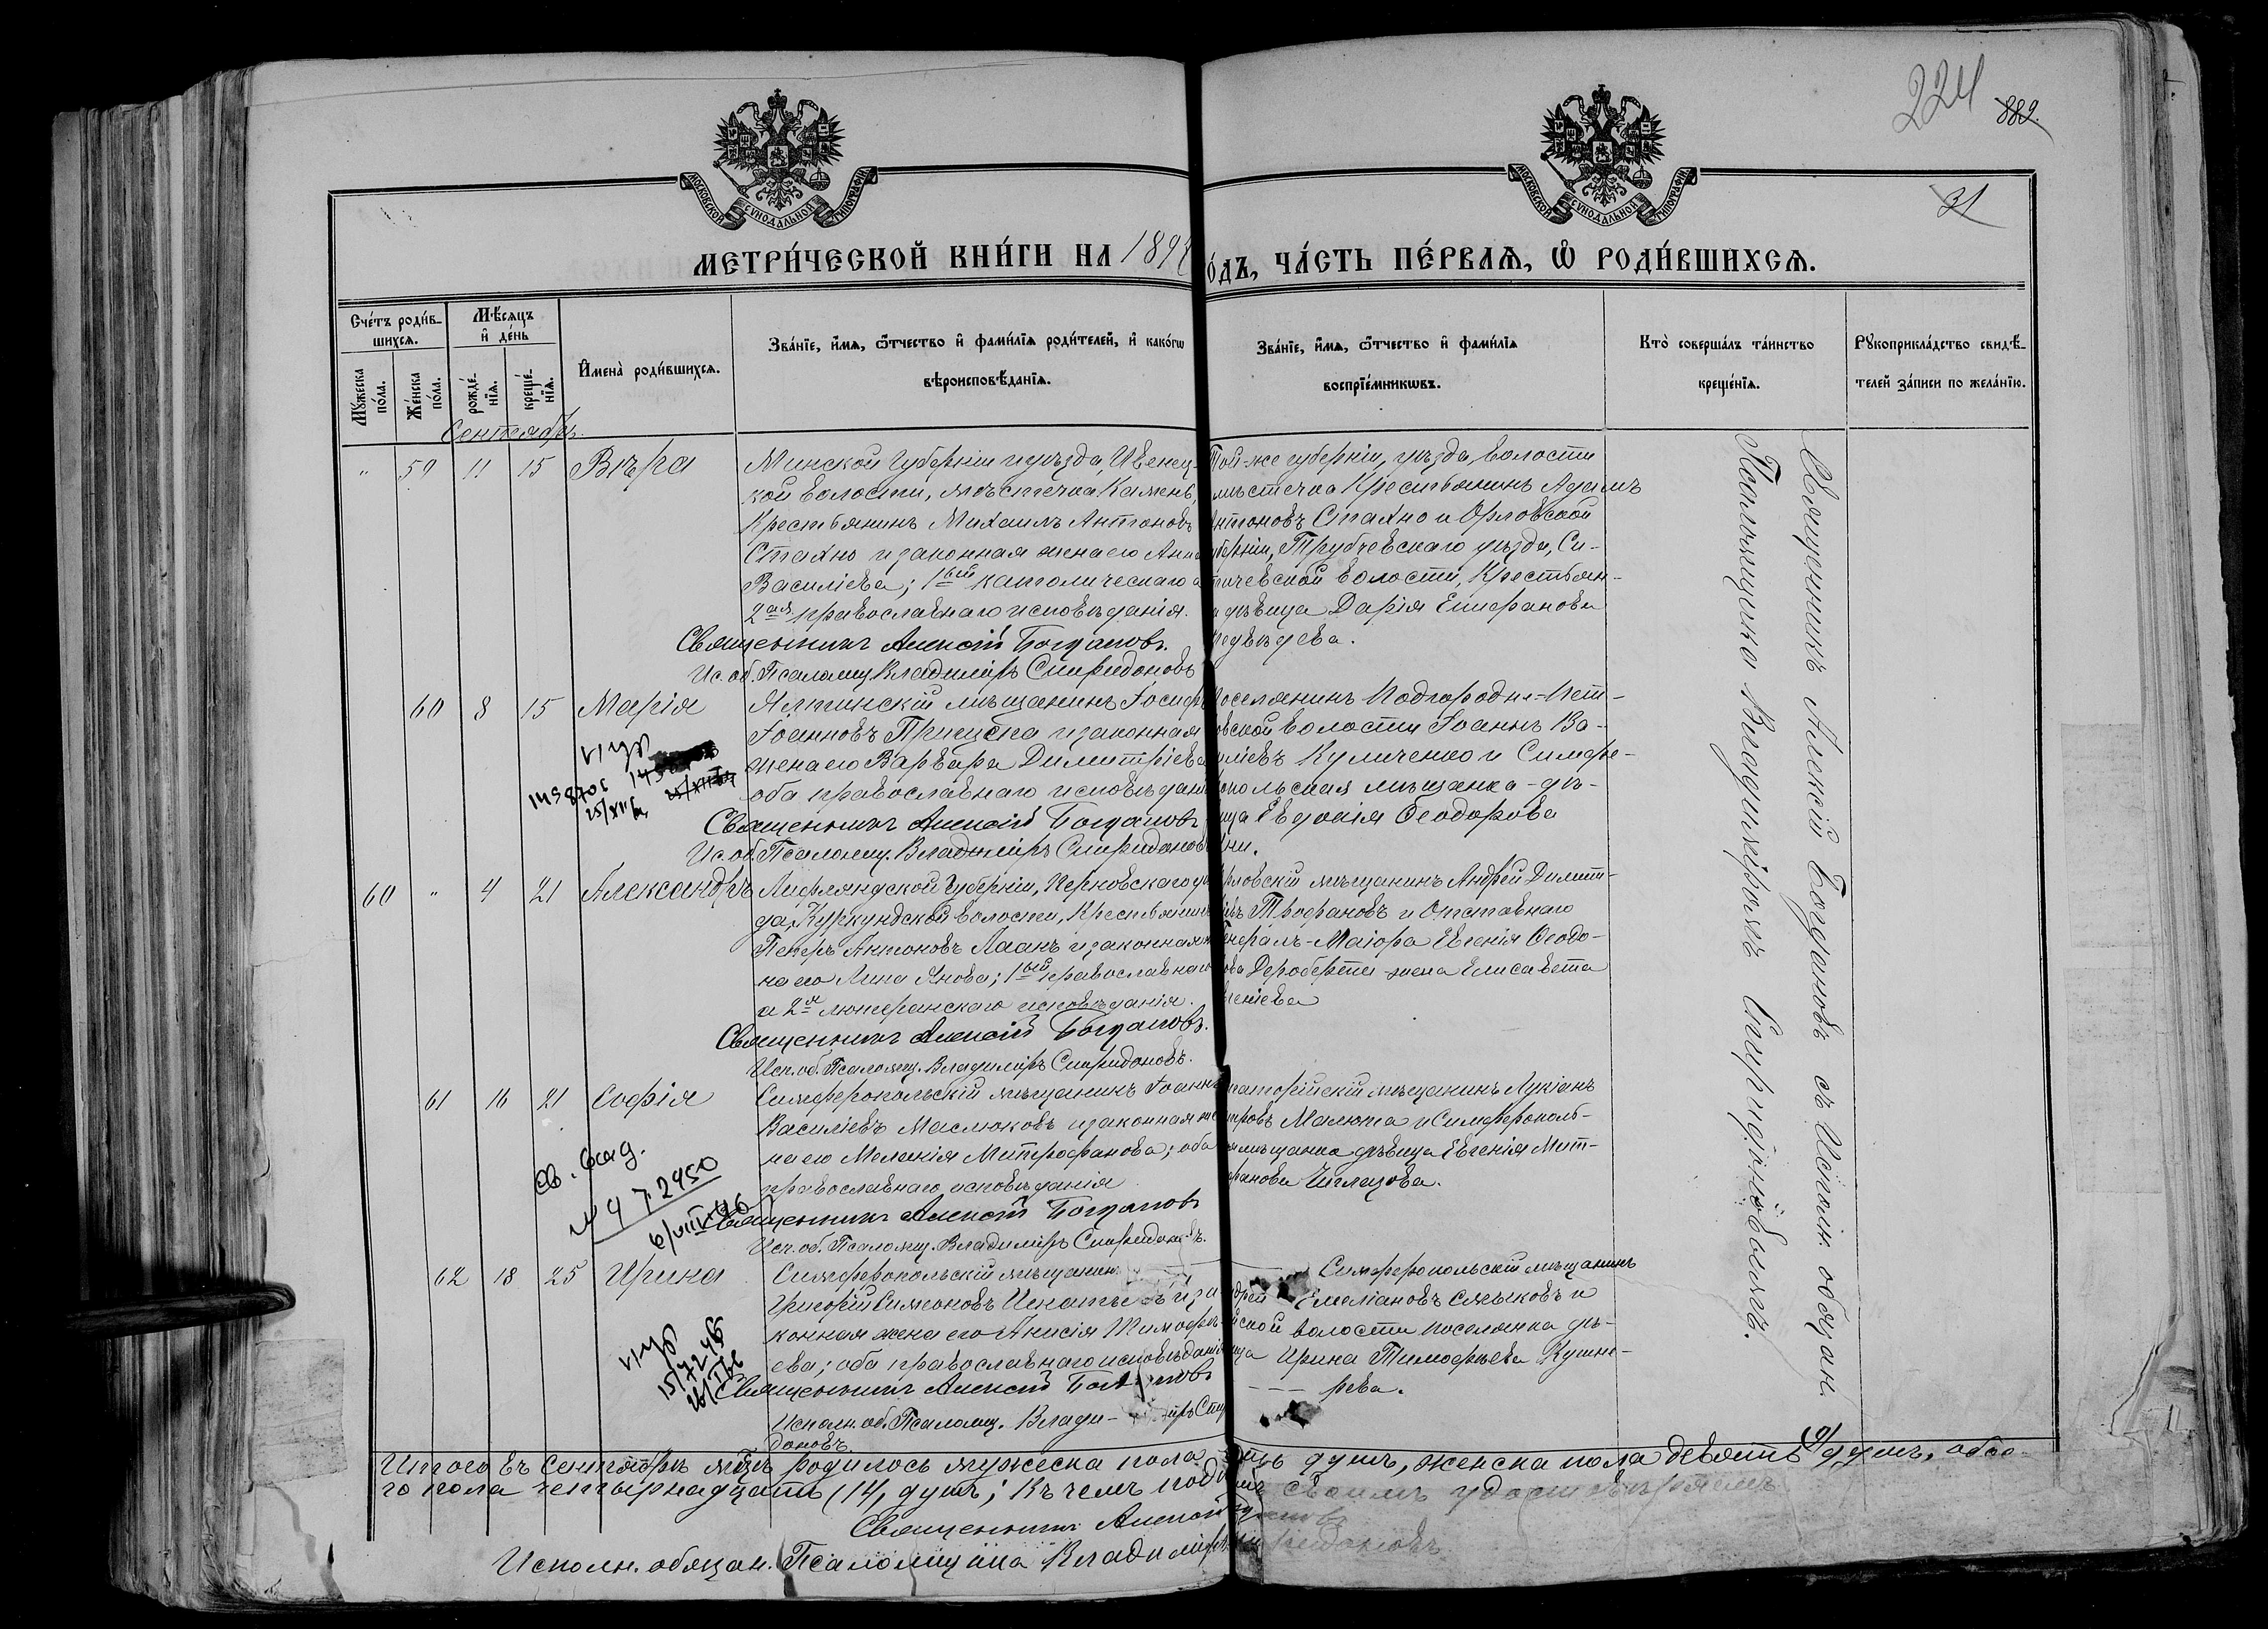 224
889.
31
МОСКОВСКОЙ СѴНОДАЛЬНОЙ ТИПОГРАФІИ
МОСКОВСКОЙ СѴНОДАЛЬНОЙ ТИПОГРАФІИ
МЕТРИ́ЧЕСКОЙ КНИ́ГИ НА 189
О́ДЪ, ЧА́СТЬ ПЕ́РВАѦ, Ѡ РОДИ́ВШИХСѦ.
Сче́тъ роди́в-
шихсѧ.
Мꙋ́жеска по́ла.
Же́нска по́ла.
Мѣ́сѧцъ
и де́нь
рожде́-нїѧ.
креще́-нїѧ.
Имена̀ роди́вшихсѧ.
Зва́нїе, и́мѧ, ѻ́тчество и фами́лїѧ роди́телей, и како́гѡ
вѣроисповѣ́данїѧ.
Зва́нїе, и́мѧ, ѻ́тчество и фами́лїѧ
воспрїе́мникѡвъ.
Кто̀ соверша́лъ та́инство
креще́нїѧ.
Рꙋкоприкла́дство свидѣ́-
телей за́писи по жела́нїю.
Сентябрь.
" 59 11 15 Вѣра
Минской Губерніи и уѣзда, Ивенец-
кой волости, мѣстечка Камень,
Крестьянинъ Михаилъ Антоновъ
Стахно и законная жена его Анна
Василіева; 1ый католическаго а
2ая православнаго исповѣданія.
Священникъ Алексій Богдановъ.
Ис. об. Псаломщ. Владиміръ Спиридоновъ
Той-же губерніи, уѣзда, волости
мѣстечка Крестьянинъ Адамъ
Антоновъ Стахно и Орловской
губерніи, Трубчевскаго уѣзда, Си-
чевской волости, Крестьян-
дѣвица Дарія Епифанова
Медвѣдева.
60 8 15 Марія
Ялтинскій мѣщанинъ Іосифъ
Іоанновъ и законная
жена его Варвара Димитріева
оба православнаго исповѣданія
Священникъ Алексій Богдановъ
Ис. об. Псаломщ. Владиміръ Спиридоновъ
поселянинъ Подгородне-Пет-
ровской волости Іоаннъ Ва-
силіевъ Куличенко и Симфе-
ропольская мѣщанка-дѣ-
вица Евдокія Ѳеодорова
60 " 4 21 Александръ
Лифляндской Губерніи, Перновскаго уѣз-
да, Куркундской волости, Крестьянинъ
Петръ Антоновъ Лаанъ и законная же-
на его Лина Янова; 1ый православнаго
а 2я лютеранскаго исповѣданія.
Священникъ Алексій Богдановъ.
Исп. об. Псаломщ. Владиміръ Спиридоновъ.
Орловскій мѣщанинъ Андрей Димит-
ріевъ Трофановъ и Отставнаго
Генералъ-Маіора Евгенія Ѳеодо-
рова Дероберти жена Елисавета
Евгеніева
61 16 21 Софія
Симферопольскій мѣщанинъ Іоаннъ
Василіевъ Маслюковъ и законная же-
на его Меланія Митрофанова; оба
православнаго исповѣданія
Священникъ Алексій Богдановъ
Исп. об. Псаломщ. Владиміръ Спиридоновъ.
Евпаторійскій мѣщанинъ Лукіанъ
Петровъ Малюта и Симферополь-
мѣщанка дѣвица Евгенія Мит-
рофанова
№ 472950
6/VIII 46
62 18 25 Ирина
Симферопольскій мѣщанинъ
Григорій Симоновъ Игнатьевъ и за-
конная жена его Анисія Тимофѣ-
ева; оба православнаго исповѣданія
Священникъ Алексій Богдановъ
Исполн. об. Псаломщ. Влади-міръ Спири-
доновъ.
Симферопольскій мѣщанинъ
Андрей Емеліановъ и
волости поселянка дѣ-
вица Ирина Тимофѣева Кушна-
рева.
Священникъ Алексій Богдановъ съ Исполн. обязан.
Псаломщика Владиміромъ Спиридоновымъ.
Итого въ Сентябрѣ мѣсяцѣ родилось мужеска пола пять душъ, женска пола девять (9) душъ, обое-
го пола четырнадцать (14) душъ; Къ чемъ подписомъ своимъ удостовѣряемъ
Священникъ Алексій Богдановъ
Исполн. обязан. Псаломщика Владиміръ Спиридоновъ